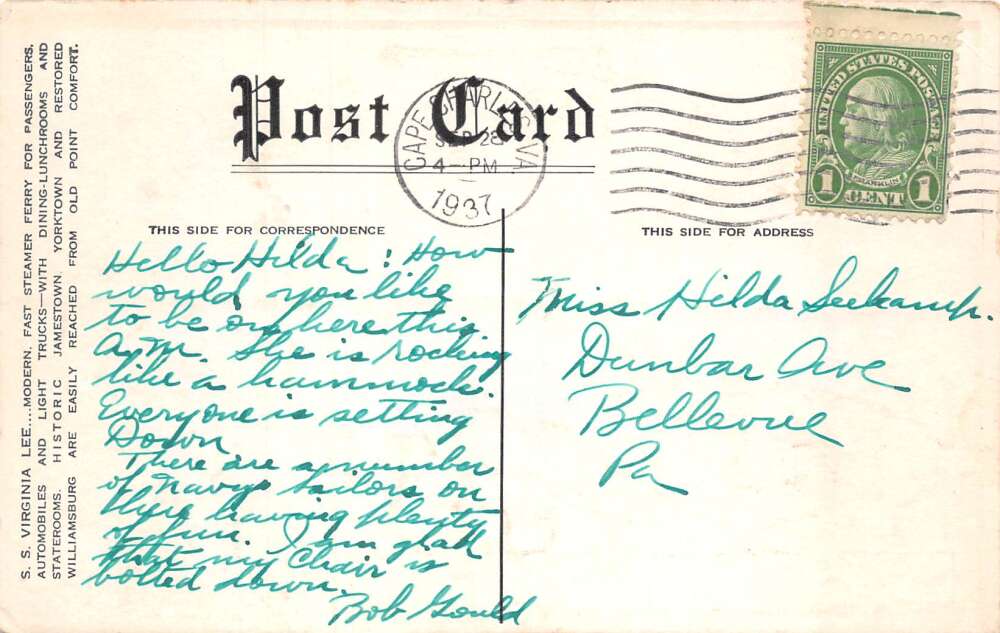 S. S. VIRGINIA LEE....MODERN, FAST STEAMER FERRY FOR PASSENGERS,
AUTOMOBILES AND LIGHT TRUCKS—WITH DINING-LUNCHROOMS AND
STATEROOMS. HISTORIC JAMESTOWN, YORKTOWN AND RESTORED
WILLIAMSBURG ARE EASILY REACHED FROM OLD POINT COMFORT.
Post Card
CAPE CHARLES, VA
SEP 28
4-PM
1937
UNITED STATES POSTAGE
FRANKLIN
1 CENT 1
THIS SIDE FOR CORRESPONDENCE
Hello Hilda: How
would you like
to be on here this
A.M. She is rocking
like a hammock.
Everyone is setting
Down
There are a number
of Navy sailors on
here having plenty
of fun. I am glad
that my chair is
bolted down.
Bob Gould
THIS SIDE FOR ADDRESS
Miss Hilda Seekamp.
Dunbar Ave
Bellevue
Pa